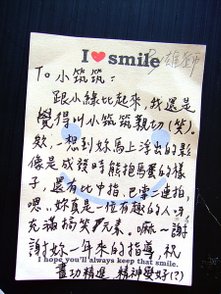 I ♥ smile
To 小筑筑:
跟小綠比起來,我還是
覺得叫小筑筑親切(笑)。
欸,想到妳馬上浮出的影
像是成發時熊拍馬蛋的樣
子,還有比中指、巴掌二連拍,
嗯..妳真是一位有趣的人呀
充滿搞笑兄弟。嘛~謝
謝妳一年來的指導,祝
I hope you'll always keep that smile.
畫功精進,精神變好(?)